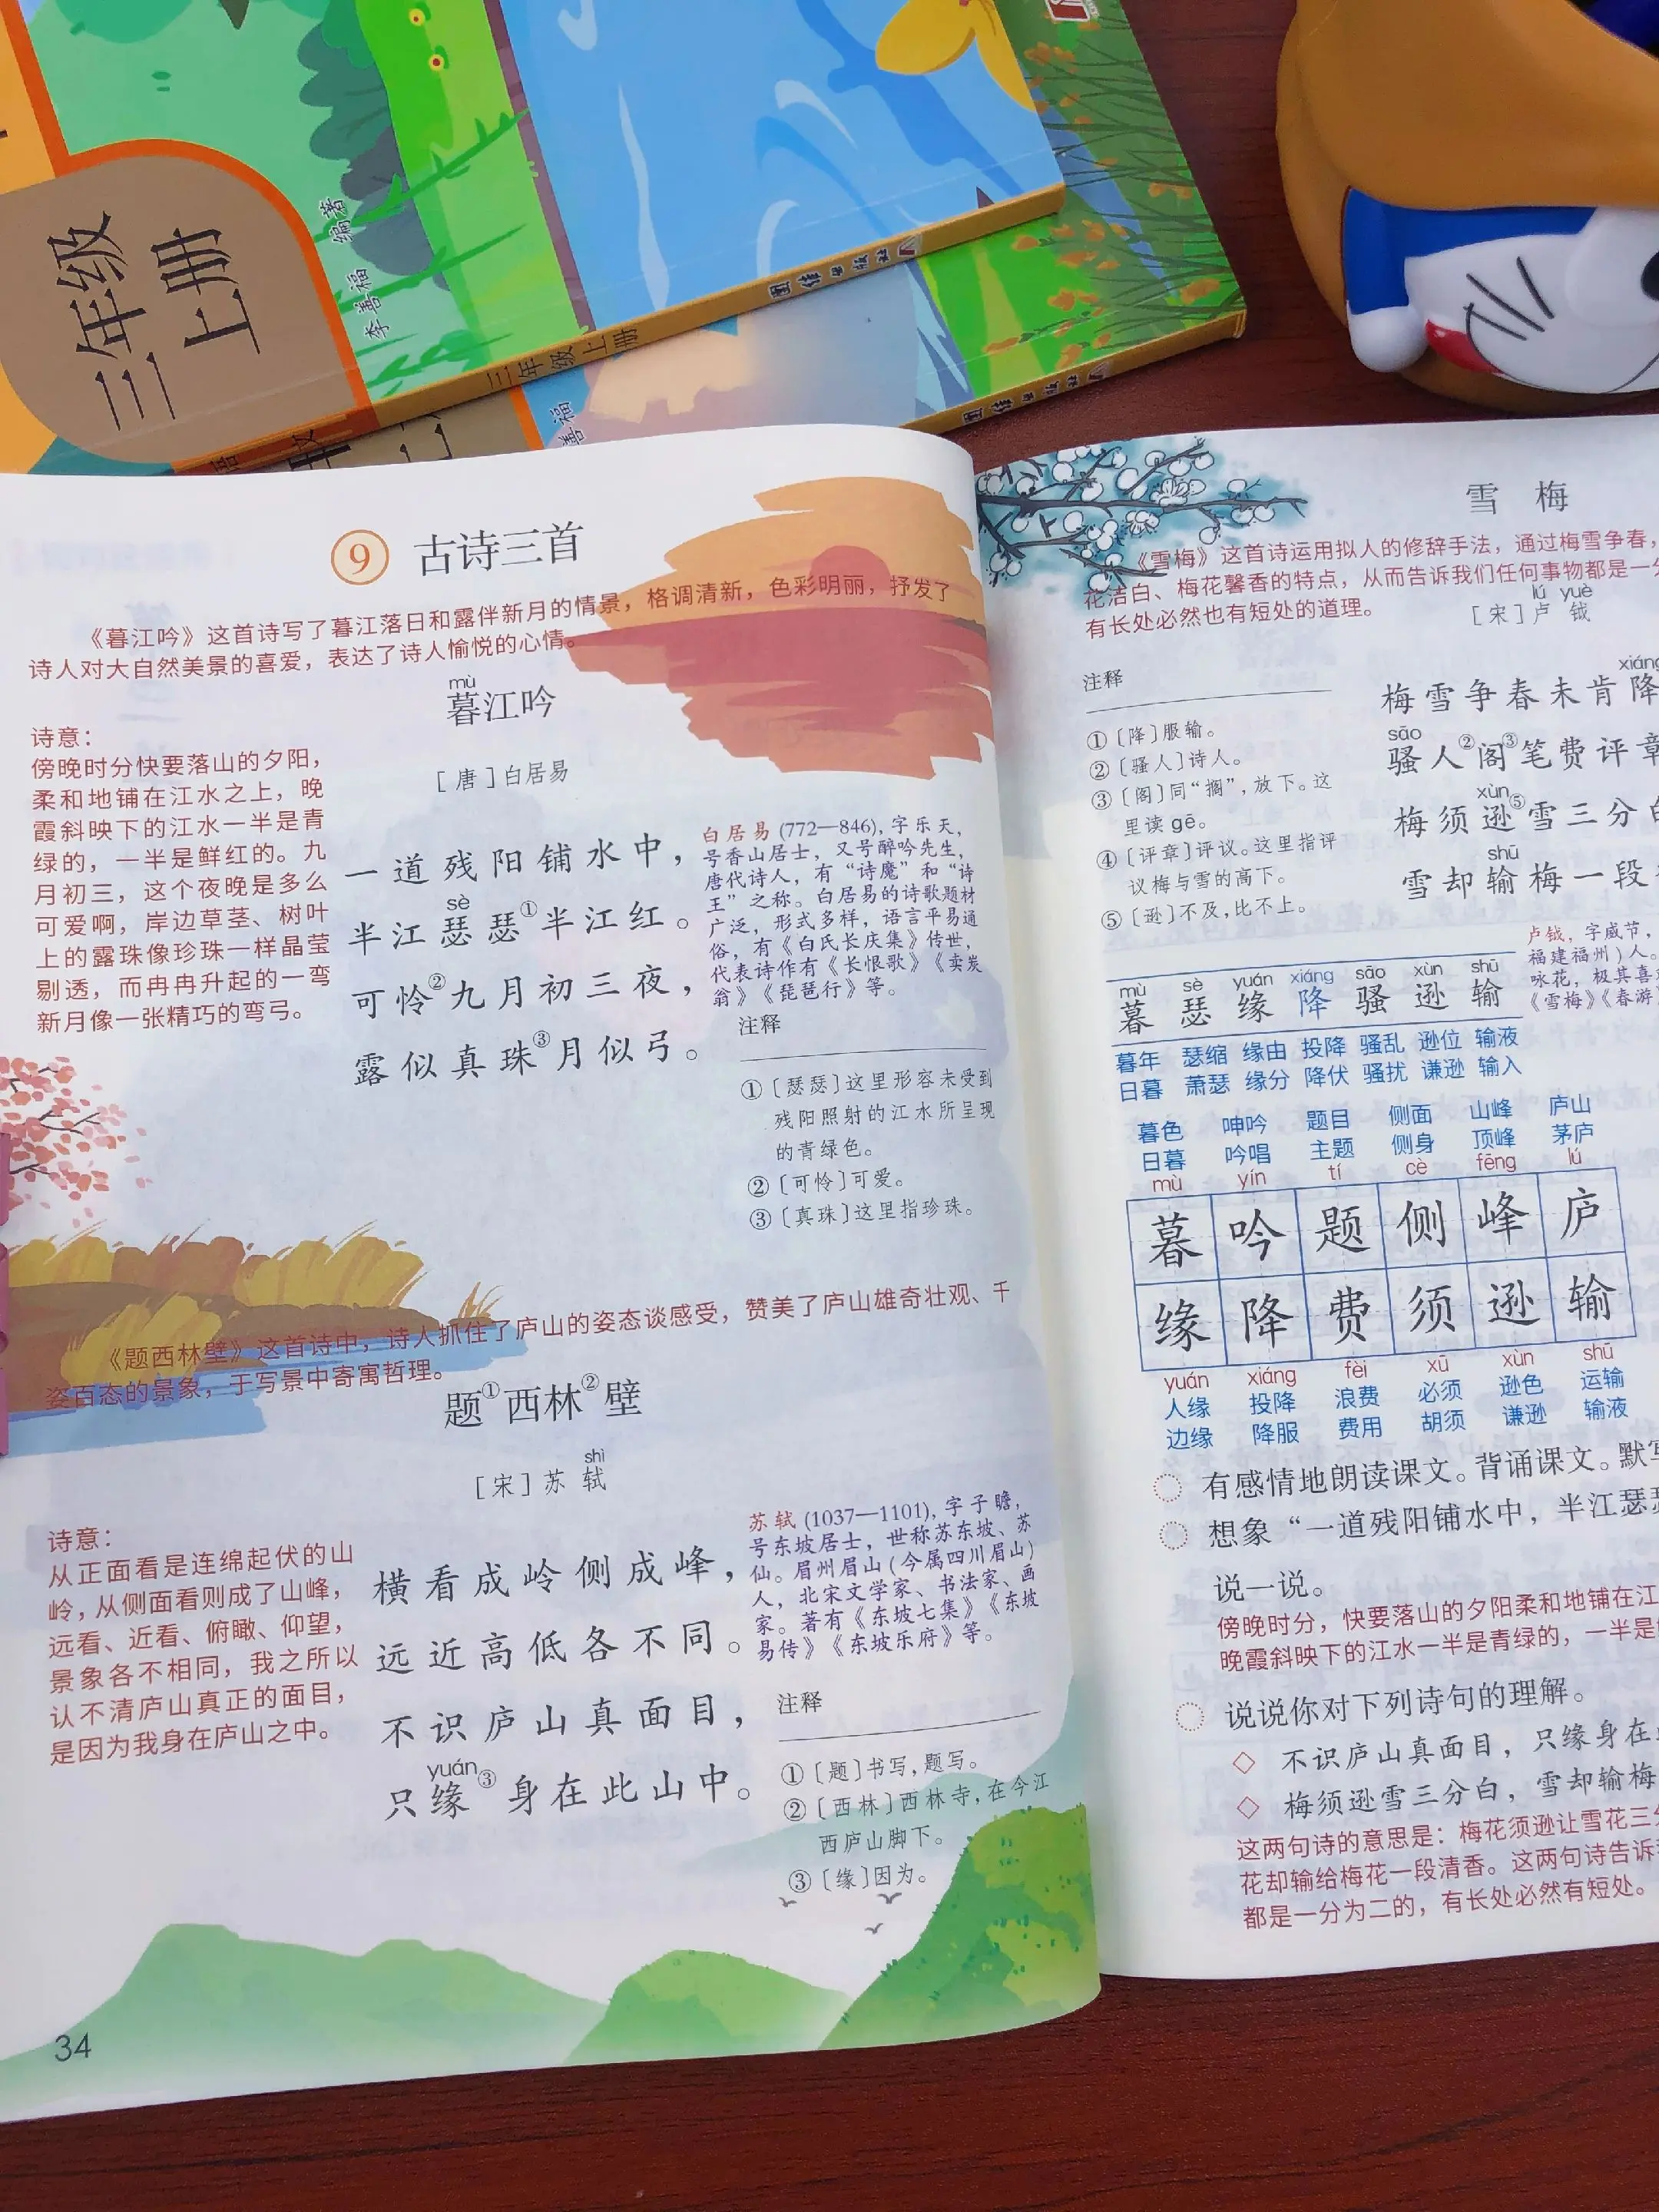 三年级
上册
李善福 编著
三年级上册
团结出版社
善福
团结出版社
9 古诗三首
《暮江吟》这首诗写了暮江落日和露伴新月的情景，格调清新，色彩明丽，抒发了
诗人对大自然美景的喜爱，表达了诗人愉悦的心情。
mù
暮江吟
[唐]白居易
诗意：
傍晚时分快要落山的夕阳，
柔和地铺在江水之上，晚
霞斜映下的江水一半是青
绿的，一半是鲜红的。九
月初三，这个夜晚是多么
可爱啊，岸边草茎、树叶
上的露珠像珍珠一样晶莹
剔透，而冉冉升起的一弯
新月像一张精巧的弯弓。
一道残阳铺水中，
sè
半江瑟瑟①半江红。
可怜②九月初三夜，
露似真珠③月似弓。
白居易(772—846)，字乐天，
号香山居士，又号醉吟先生，
唐代诗人，有“诗魔”和“诗
王”之称。白居易的诗歌题材
广泛，形式多样，语言平易通
俗，有《白氏长庆集》传世，
代表诗作有《长恨歌》《卖炭
翁》《琵琶行》等。
注释
①〔瑟瑟〕这里形容未受到
残阳照射的江水所呈现
的青绿色。
②〔可怜〕可爱。
③〔真珠〕这里指珍珠。
《题西林壁》这首诗中，诗人抓住了庐山的姿态谈感受，赞美了庐山雄奇壮观、千
姿百态的景象，于写景中寄寓哲理。
题①西林②壁
shì
[宋]苏轼
诗意：
从正面看是连绵起伏的山
岭，从侧面看则成了山峰，
远看、近看、俯瞰、仰望，
景象各不相同，我之所以
认不清庐山真正的面目，
是因为我身在庐山之中。
横看成岭侧成峰，
远近高低各不同。
不识庐山真面目，
yuán
只缘③身在此山中。
苏轼(1037—1101)，字子瞻，
号东坡居士，世称苏东坡、苏
仙。眉州眉山(今属四川眉山)
人，北宋文学家、书法家、画
家。著有《东坡七集》《东坡
易传》《东坡乐府》等。
注释
①〔题〕书写，题写。
②〔西林〕西林寺，在今江
西庐山脚下。
③〔缘〕因为。
34
雪梅
《雪梅》这首诗运用拟人的修辞手法，通过梅雪争春，
花洁白、梅花馨香的特点，从而告诉我们任何事物都是一分
有长处必然也有短处的道理。
lú yuè
[宋]卢钺
注释
①〔降〕服输。
②〔骚人〕诗人。
③〔阁〕同“搁”，放下。这
里读gē。
④〔评章〕评议。这里指评
议梅与雪的高下。
⑤〔逊〕不及，比不上。
xiáng
梅雪争春未肯降
sāo
骚人②阁③笔费评章
xùn
梅须逊⑤雪三分白
shū
雪却输梅一段
卢钺，字威节，
福建福州)人。
咏花，极其喜
《雪梅》《春游》
mù sè yuán xiáng sāo xùn shū
暮 瑟 缘 降 骚 逊 输
暮年 瑟缩 缘由 投降 骚乱 逊位 输液
日暮 萧瑟 缘分 降伏 骚扰 谦逊 输入
暮色 呻吟 题目 侧面 山峰 庐山
日暮 吟唱 主题 侧身 顶峰 茅庐
mù yín tí cè fēng lú
暮 吟 题 侧 峰 庐
缘 降 费 须 逊 输
yuán xiáng fèi xū xùn shū
人缘 投降 浪费 必须 逊色 运输
边缘 降服 费用 胡须 谦逊 输液
有感情地朗读课文。背诵课文。默写
想象“一道残阳铺水中，半江瑟瑟
说一说。
傍晚时分，快要落山的夕阳柔和地铺在江
晚霞斜映下的江水一半是青绿的，一半是
说说你对下列诗句的理解。
◇ 不识庐山真面目，只缘身在
◇ 梅须逊雪三分白，雪却输梅
这两句诗的意思是：梅花须逊让雪花三分
花却输给梅花一段清香。这两句诗告诉
都是一分为二的，有长处必然有短处。